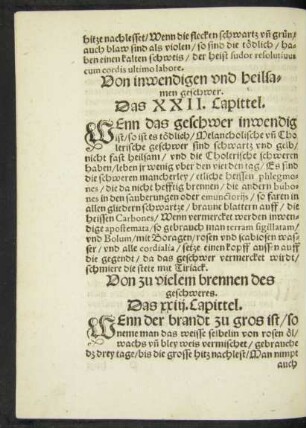 hitze nachlesset/Wenn die flecken schwartz vñ grün/
auch blaw sind als violen/so sind die tödlich/ha-
ben einen kalten schweis/der heist sudor resolutiuus
cum cordis ultimo labore.
Von inwendigen vnd heilsa-
men geschwer.
Das XXII. Capittel.
WEnn das geschwer inwendig
ist/so ist es tödlich/Melancholische vñ Cho
lerische geschwer sind schwartz vnd gelb/
nicht fast heilsam/vnd die Cholerische schweren
haben/leben jr wenig vber den vierden tag/Es sind
die schweren mancherley/etliche heissen phlegmo-
nes/die da nicht hefftig brennen/die andern bubo-
nes in den sauberungen oder emunctoriis/so faren in
allen gliedern schwartze/braune blattern auff/die
heissen Carbones/Wenn vermercket werden inwen-
digt apostemata/so gebrauch man terram sigillatam/
vnd Bolum/mit Boragen/rosen vnd scabiosen was-
ser/vnd alle cordialia/setze einen kopff aussen auff
die gegendt/da das geschwer vermercket wirdt/
schmiere die stete mit Tiriack.
Von zu vielem brennen des
geschweres.
Das xxiij. Capittel.
WEnn der brandt zu gros ist/so
neme man das weisse selblin von rosen öl/
wachs vñ bley weis vermischet/gebrauche
dz drey tage/bis die grosse hitz nachlest/Man nimpt
auch